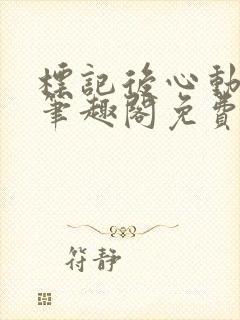 標記後心動
筆趣閣免費
符靜